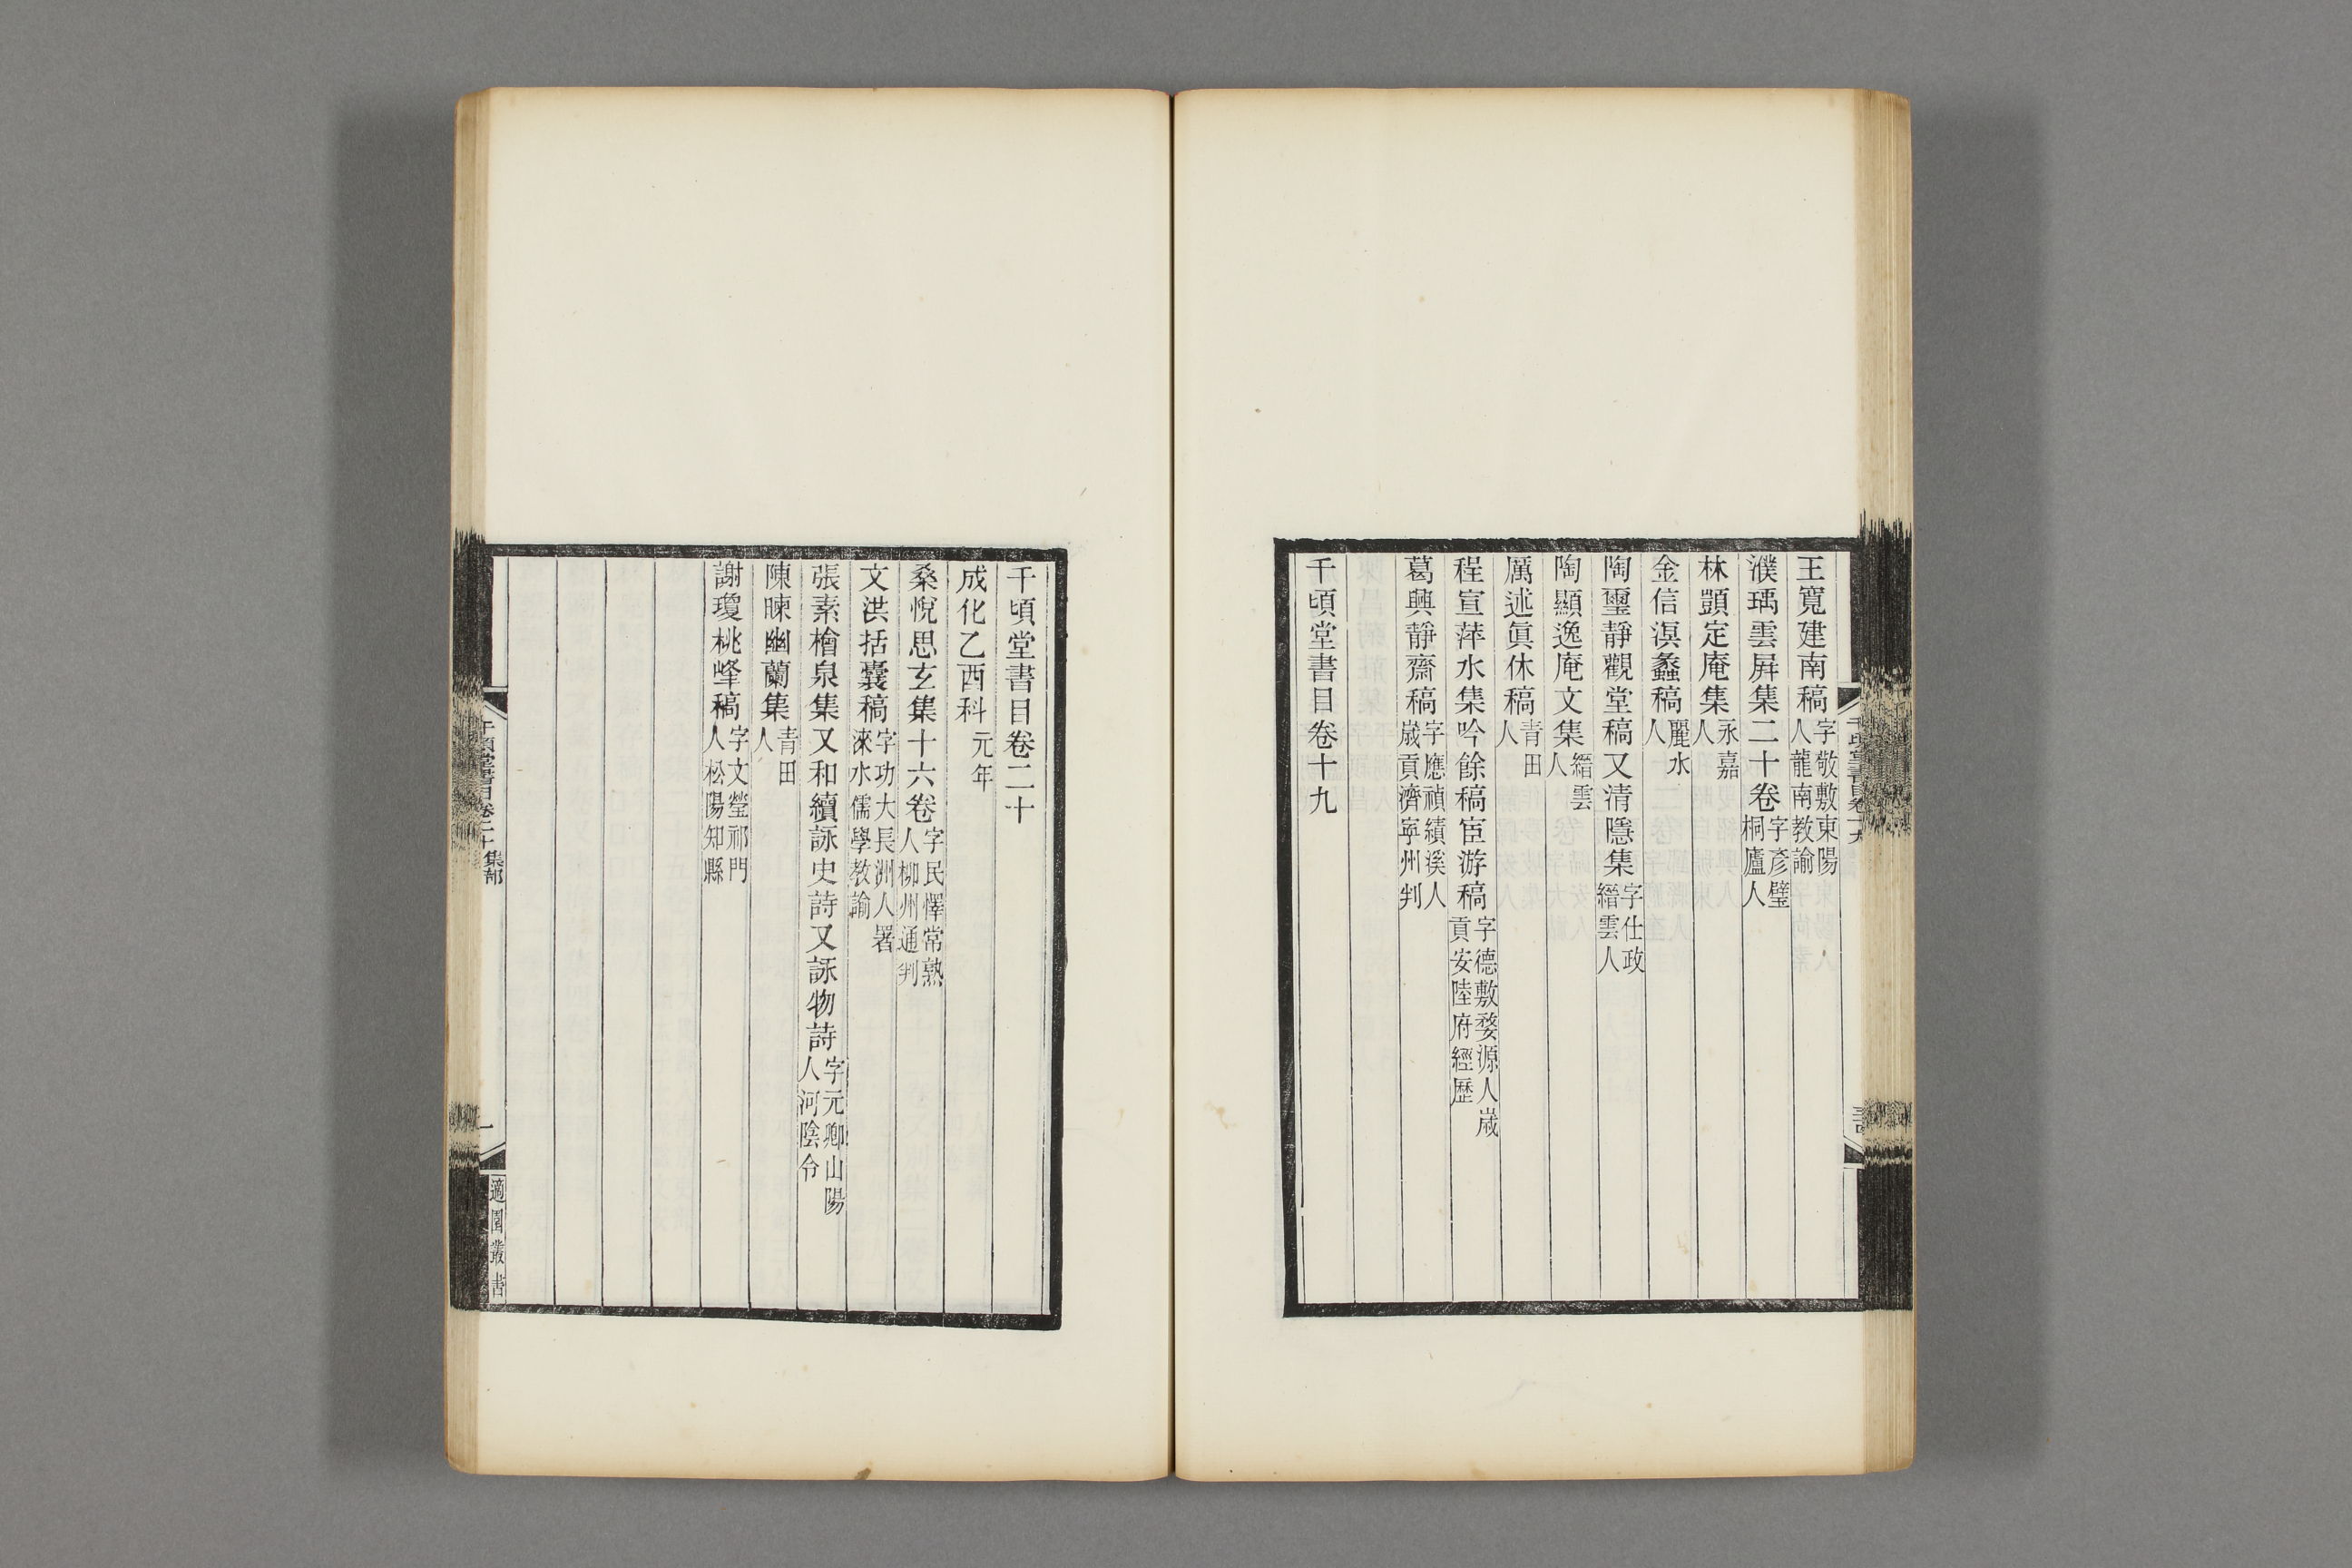 王寬建南稿字敬敷東陽人龍南教諭
濮瑀雲屛集二十卷字彥璧桐廬人
林顗定庵集永嘉人
金信溟蠡稿麗水人
陶璽靜觀堂稿又清隱集字仕政縉雲人
陶顯逸庵文集縉雲人
厲述眞休稿青田人
程宣萍水集吟餘稿宦游稿字德敷婺源人歲貢安陸府經歷
葛興靜齋稿字應禎績溪人歲貢濟寧州判
千頃堂書目卷十九
千頃堂書目卷二十
成化乙酉科元年
桑悅思玄集十六卷字民懌常熟人柳州通判
文洪括囊稿字功大長洲人署淶水儒學教諭
張素檜泉集又和續詠史詩又詠物詩字元卿山陽人河陰令
陳暕幽蘭集青田人
謝瓊桃峰稿字文瑩祁門人松陽知縣
千頃堂書目卷二十 集部
一
適園叢書